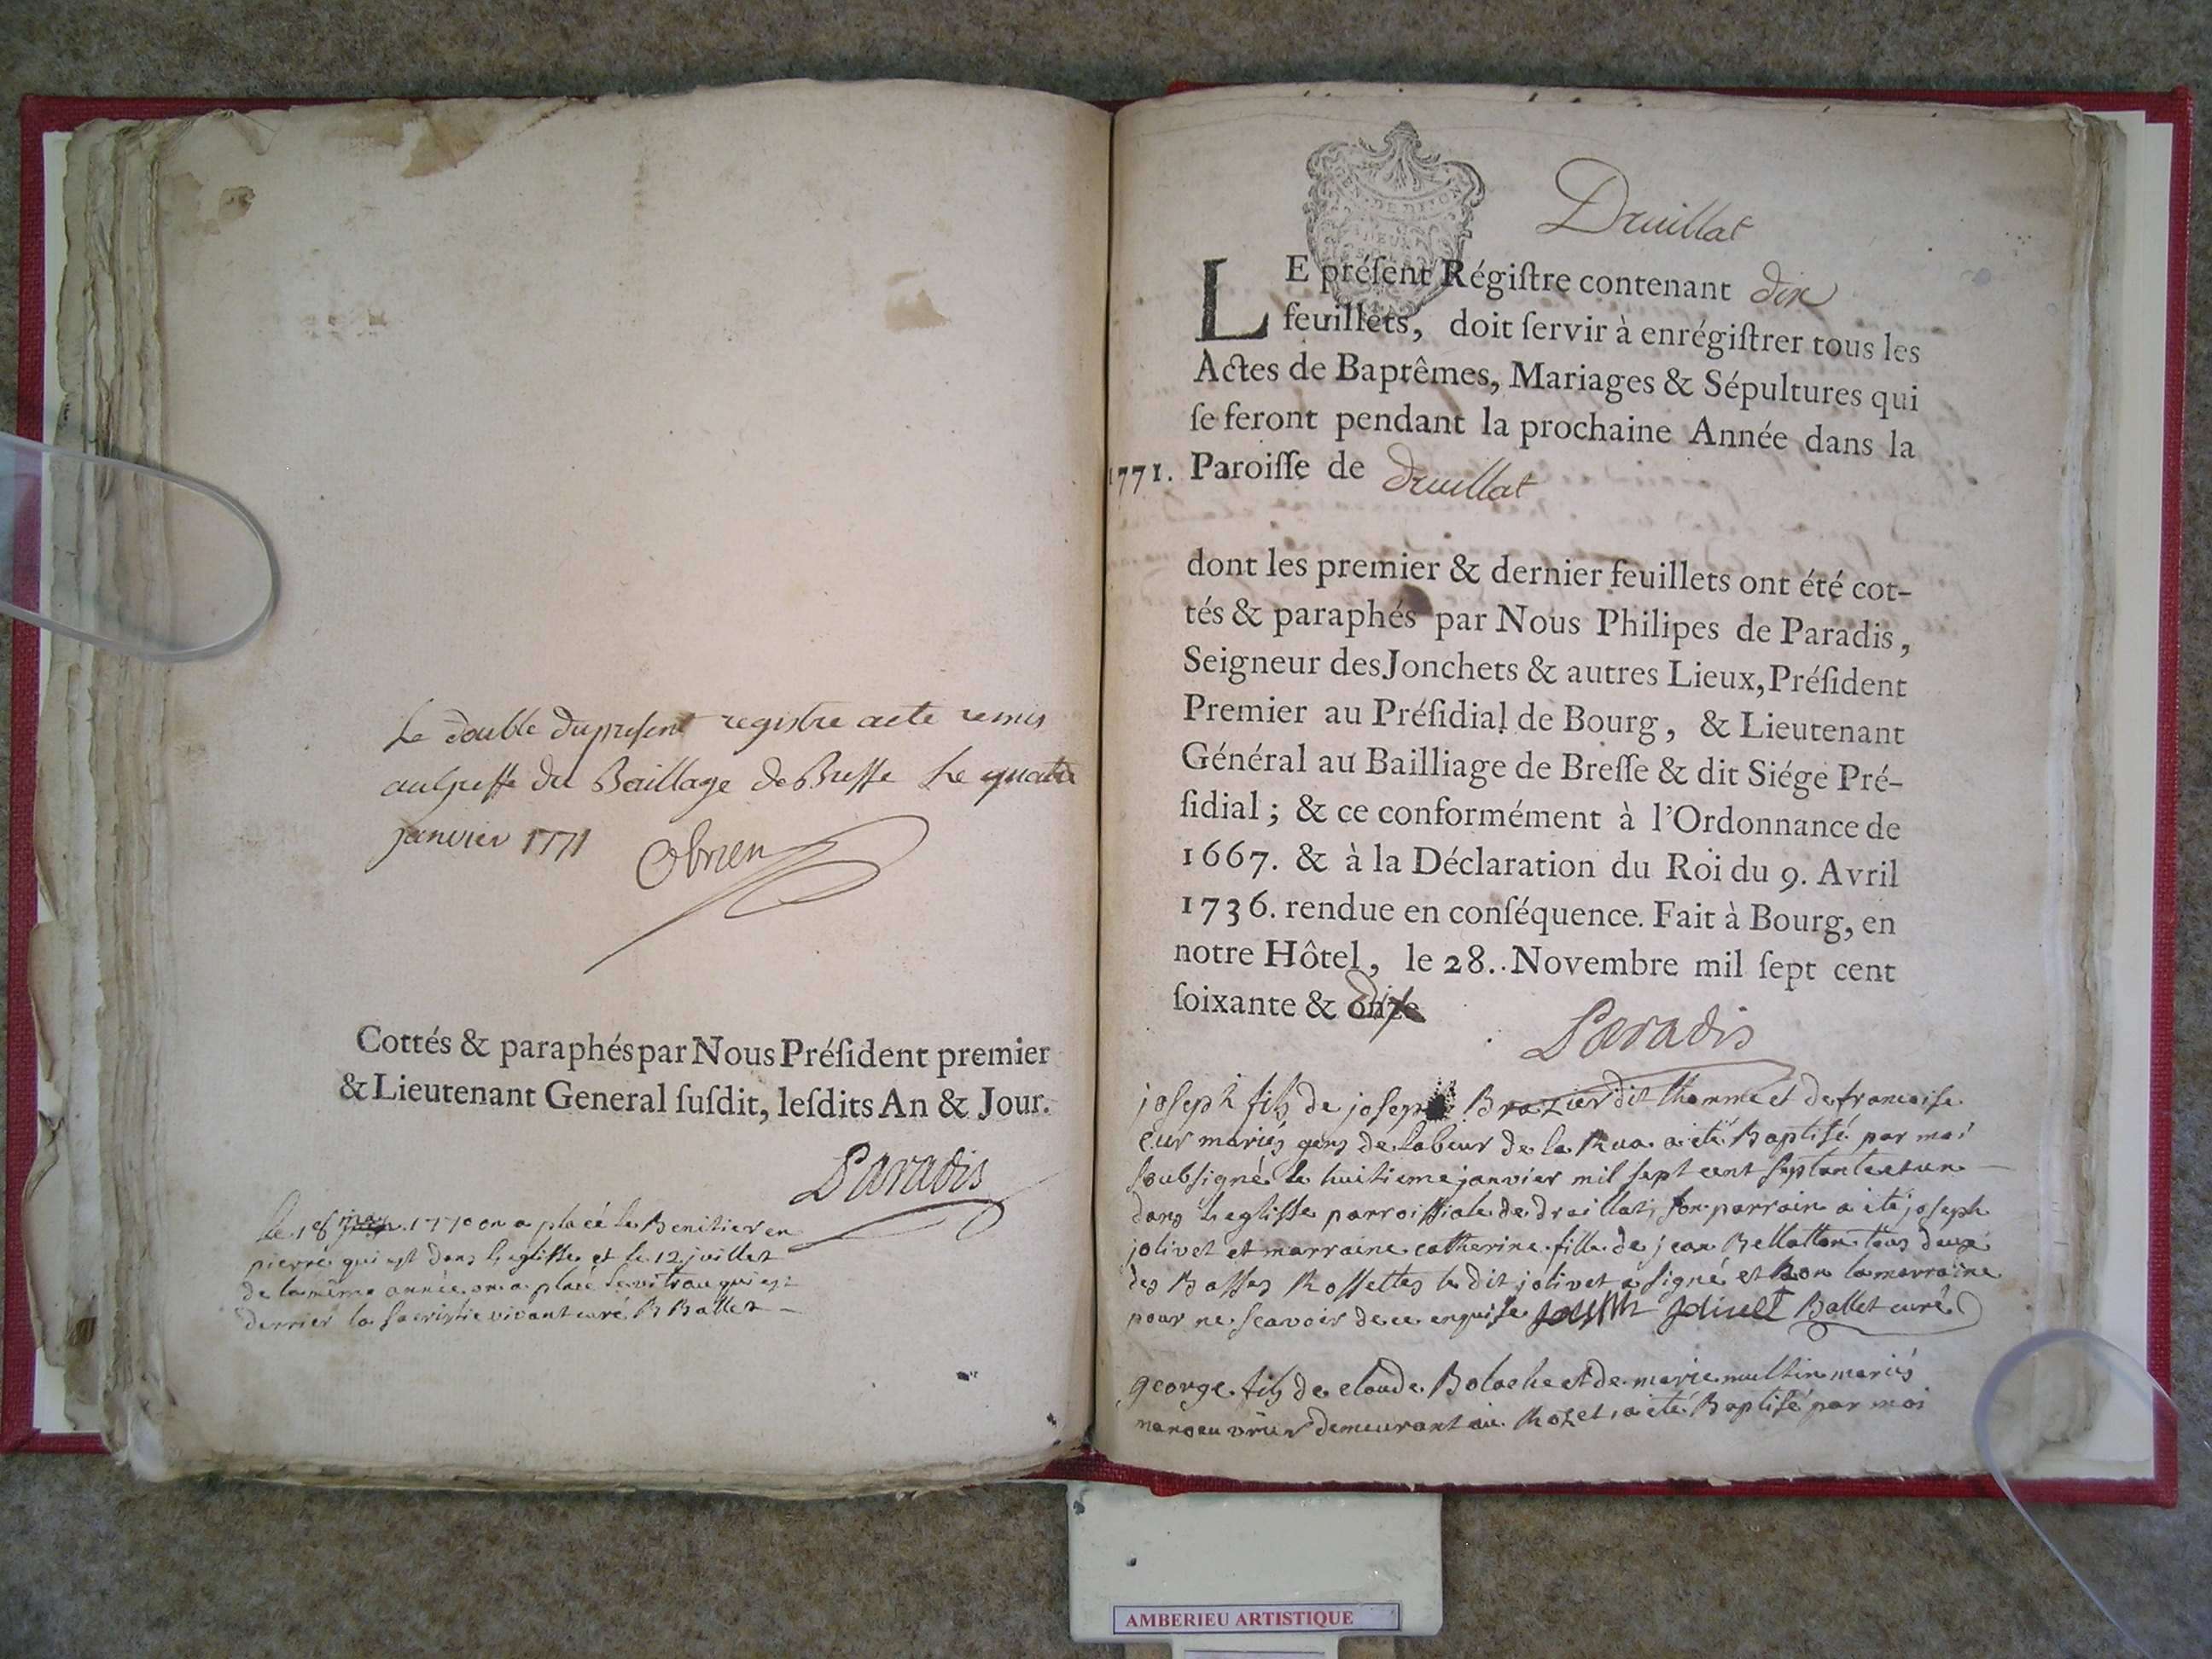 Le double du present registre a ete remis
au Greffe du Baillage de Bresse Le quatre
janvier 1771 Obrien
Cottés & paraphés par Nous Préſident premier
& Lieutenant General ſuſdit, leſdits An & Jour.
Paradis
Le 18 1770 on a placé le Benitier en
pierre qui est dans l'eglisse et le 12 juillet
de la même année on a placé le vitrau qui est
derrier la sacristie vivant curé B Ballet
Druillat
LE préſent Régiſtre contenant dix
feuillets, doit ſervir à enrégiſtrer tous les
Actes de Baptêmes, Mariages & Sépultures qui
ſe feront pendant la prochaine Année dans la
1771. Paroiſſe de Druillat
dont les premier & dernier feuillets ont été cot-
tés & paraphés par Nous Philipes de Paradis,
Seigneur des Jonchets & autres Lieux, Préſident
Premier au Préſidial de Bourg, & Lieutenant
Général au Bailliage de Breſſe & dit Siége Pré-
ſidial; & ce conformément à l'Ordonnance de
1667. & à la Déclaration du Roi du 9. Avril
1736. rendue en conſéquence. Fait à Bourg, en
notre Hôtel, le 28. Novembre mil ſept cent
ſoixante & onze dix
Paradis
joseph fils de joseph Brazier dit thomme et de francoise
cur mariés gens de labeur de la Rua a été Baptisé par moi
soubsigné le huitieme janvier mil sept cent septante et un
dans l'eglisse parroissiale de druillat, son parrain a été joseph
jolivet et marraine catherine fille de jean Bellatton tous deux
des Basses Rossettes le dit jolivet a signé et non la marraine
pour ne scavoir de ce enquise joseph jolivet Ballet curé
george fils de claude Bolache et de marie multin mariés
manoeuvrier demeurant au Rozet, a été Baptisé par moi
AMBERIEU ARTISTIQUE